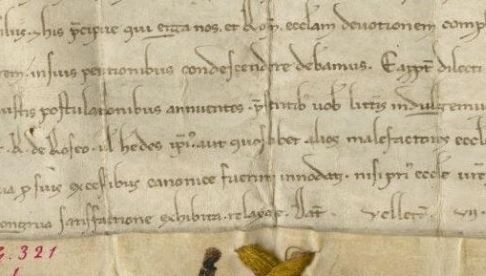 his precipue qui erga nos. et Rom. ecclam devotionem
in suis petitionibus condescendere debamus. Eappt dilecti
iustis postulationibus annuentes. psentib vob littis indulgemus
A. de Roseo. ul hedes ipi. aut quoslibet alios malefactores
p suis excessibus canonice fuerint innodati. nisi pri eccle
congrua satisfactione exhibita. relaxet. Dat. velletr. vii.
G. 321